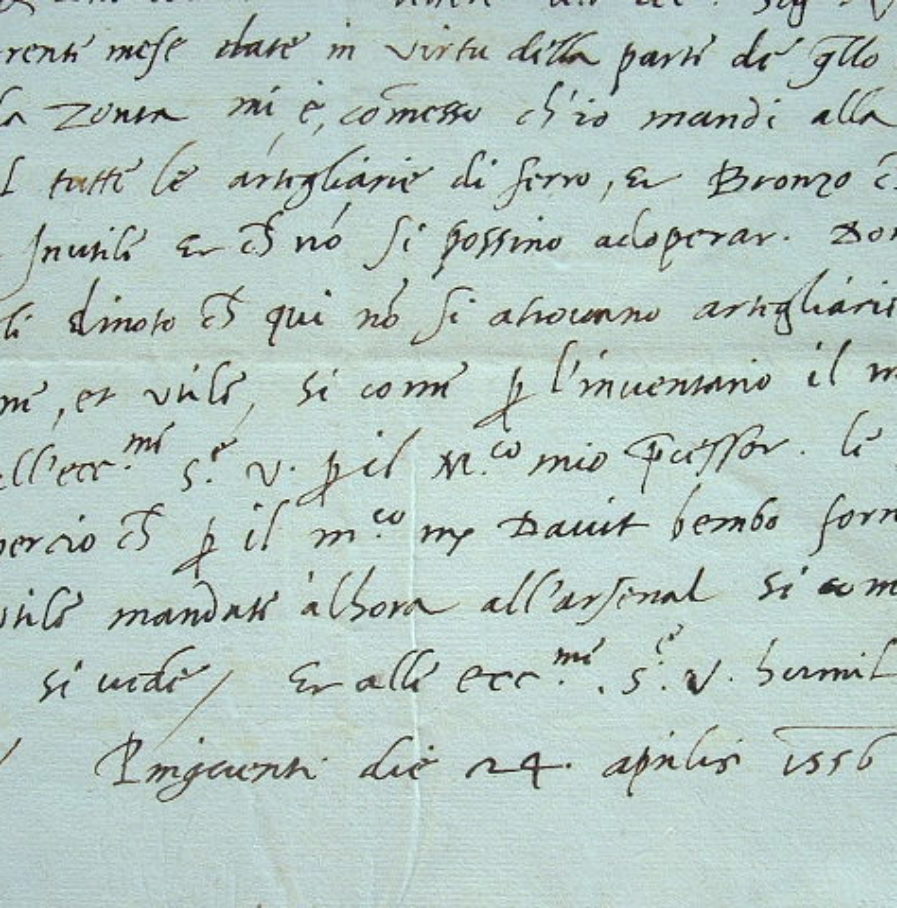 renti mese date in virtu della parte de q̃llo
la Zonta mi è, com̃esso ch'io mandi alla
tutte le artigliarie di ferro, et Bronzo ch̃
Inutile et ch̃ nõ si possino adoperar.
li dinoto ch̃ qui nõ si atrovanno artigliarie
, et utile, si come ꝑ l'inventario il
all'ecc.mi S.e V. ꝑ il M.co mio p̃cessor. le
percio ch̃ ꝑ il m.co mẜ Davit bembo
utile mandate alhora all'arsenal si com
si vede / Et alle ecc.me . S.e V. humil
Pinguenti die 24. aprilis 1556